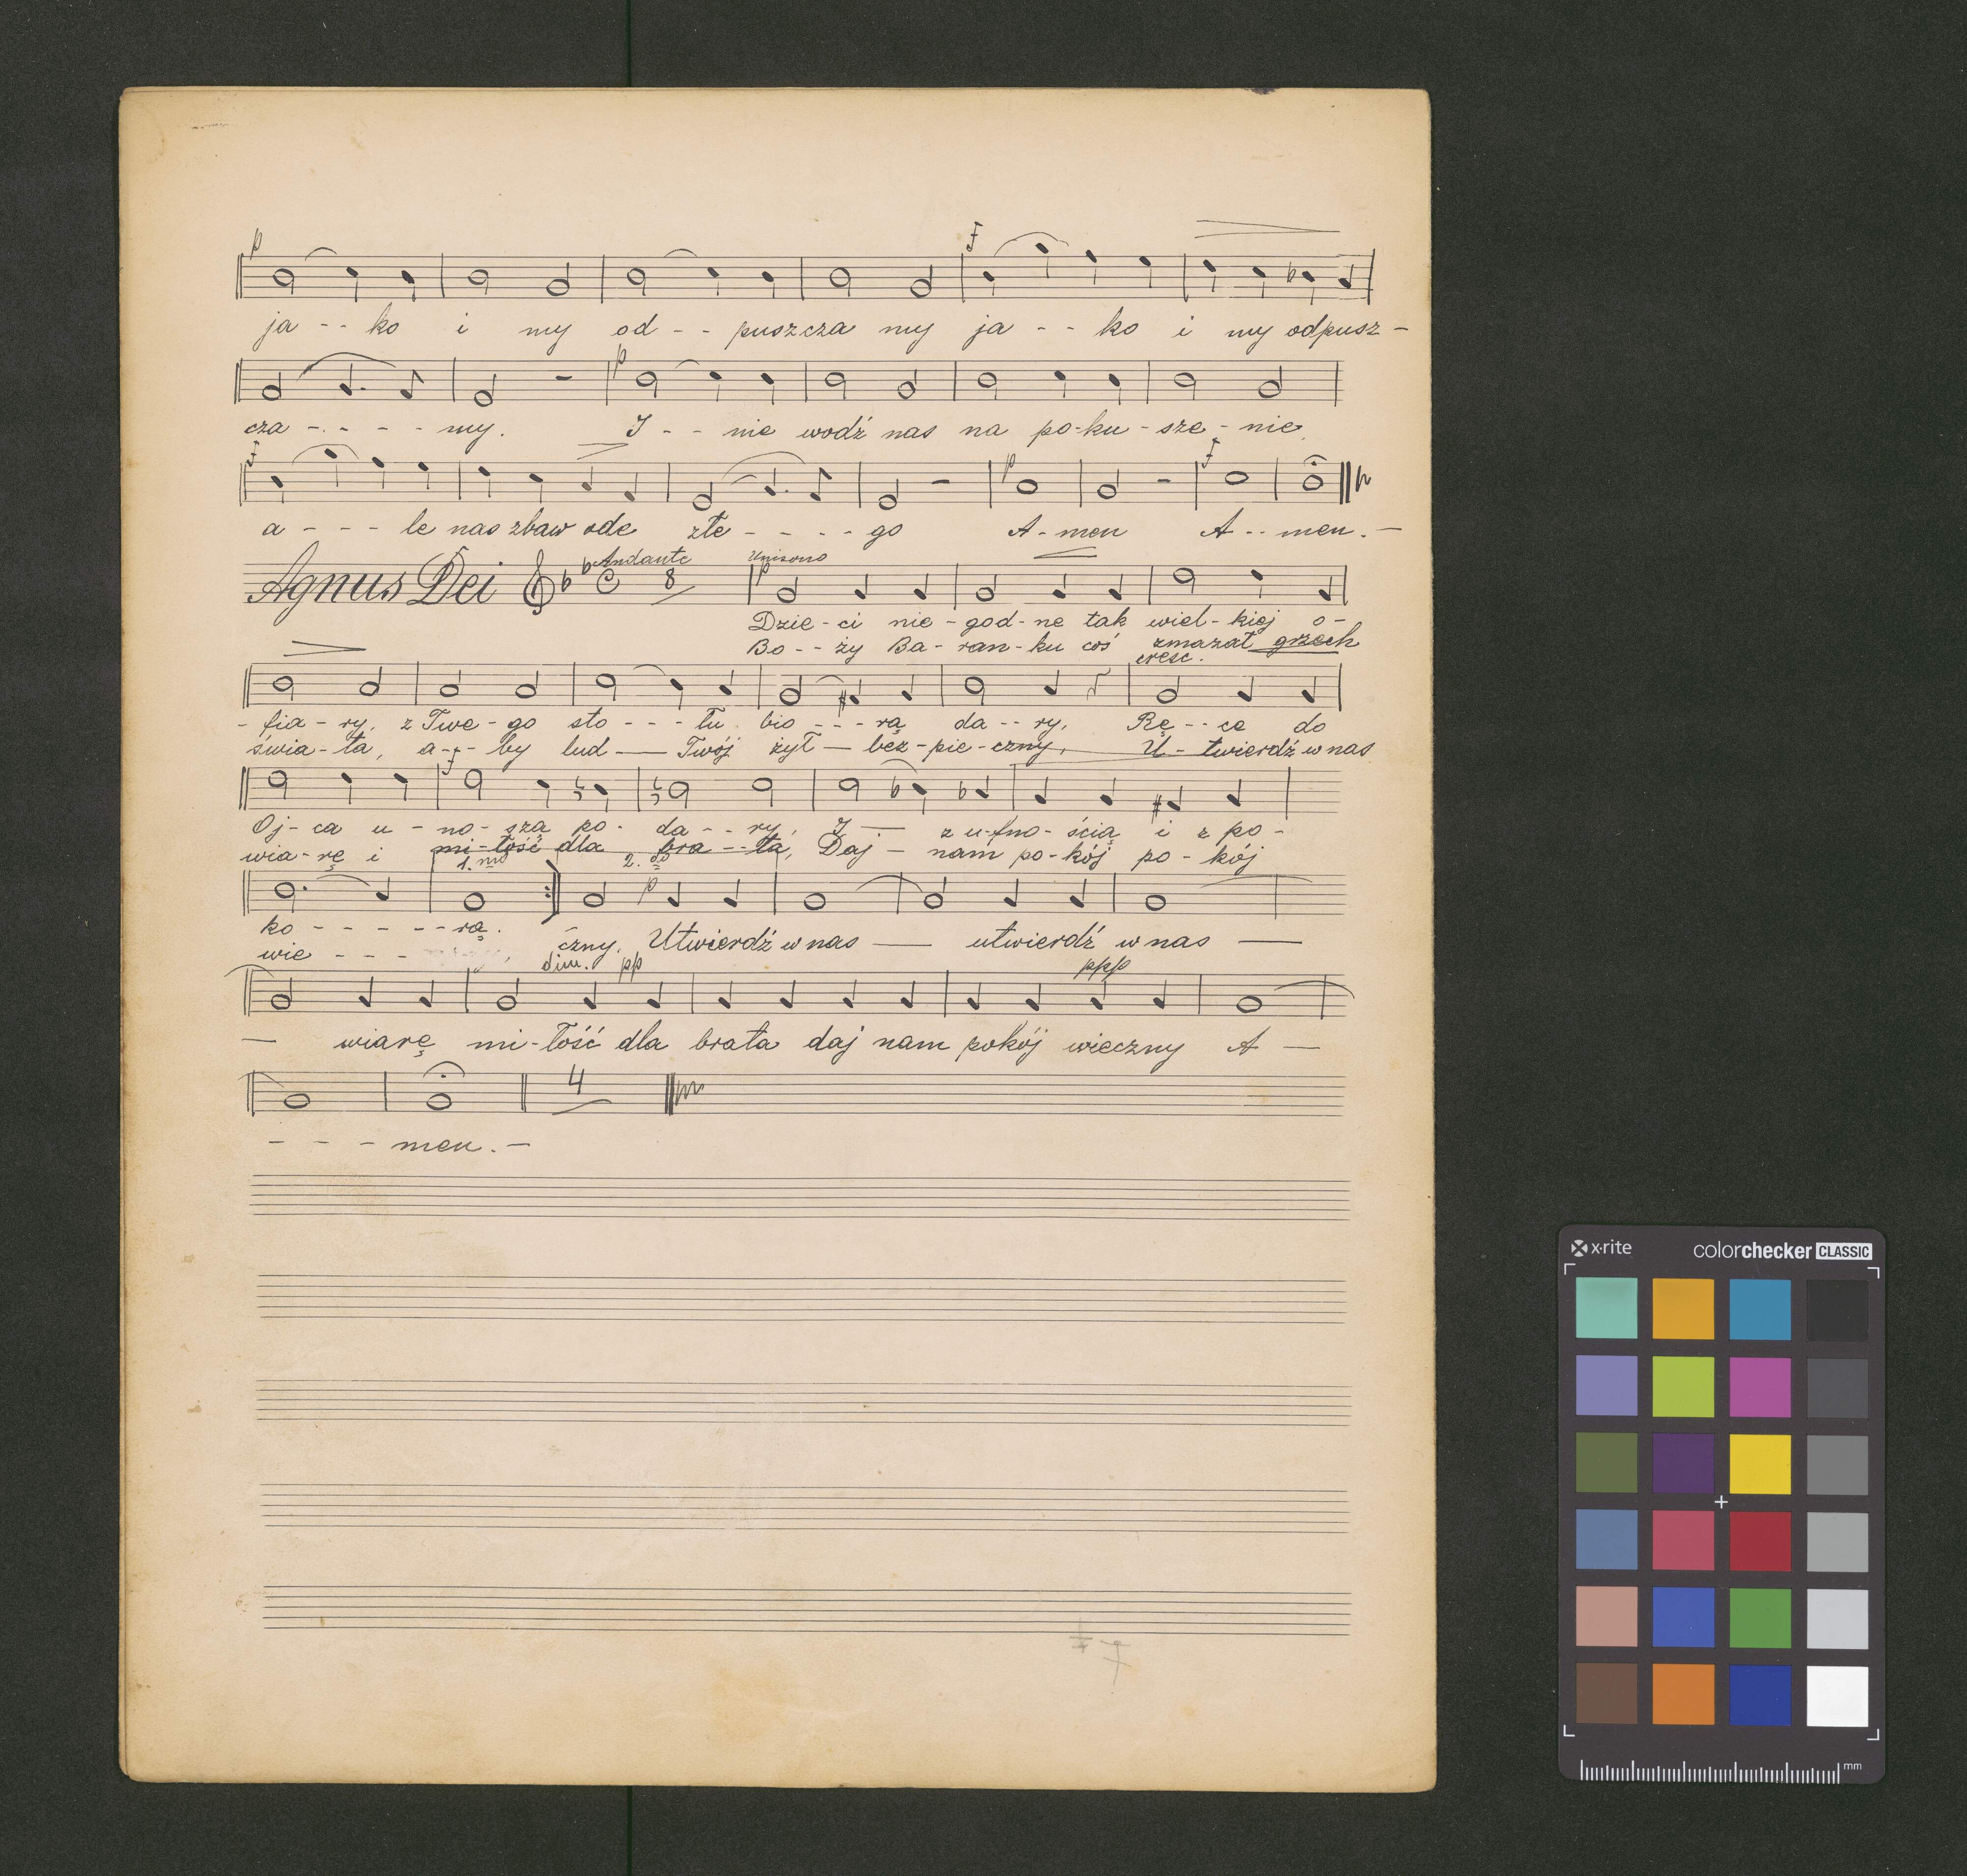 p f
ja - - ko i my od - - puszcza my ja - - ko i my odpusz -
p
cza - - - - my. I - - nie wodź nas na po-ku-sze-nie.
f p f
a - - - le nas zbaw ode złe - - - - go A-men A - - men. -
Agnus Dei Andante 8 Unisono p
Dzie - ci nie - god - ne tak wiel - kiej o -
Bo - - ży Ba - ran - ku coś zmazał grzech
cresc.
- fia - ry, z Twe - go sto - - - łu bio - - - rą da - - ry, Rę - - ce do
świa - ta, a - - - by lud — Twój żył — bez - pie - czny, U - twierdź w nas
f
Oj - ca u - no - szą po - da - - ry, I — z u-fno - ścią i z po -
wia - rę i mi - łość dla bra - - ta, Daj — nam po - kój po - kój
1. mo 2. do p
ko - - - - - rą.
wie - - - czny. Utwierdź w nas — utwierdź w nas —
dim. pp ppp
— wiarę mi - łość dla brata daj nam pokój wieczny A —
4
- - - men. -
x·rite colorchecker CLASSIC
mm